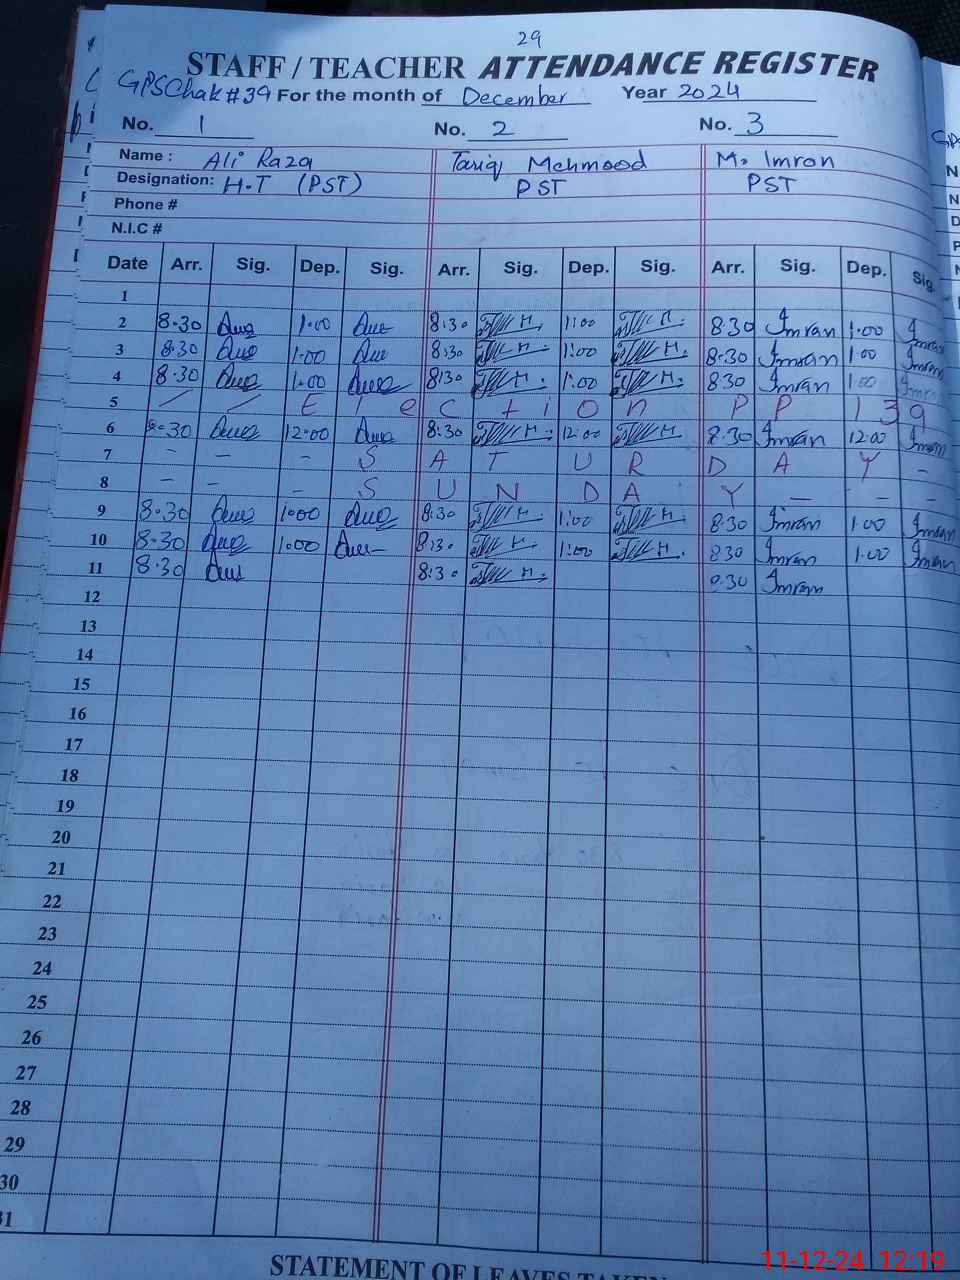 29
STAFF / TEACHER ATTENDANCE REGISTER
GPSChak#39 For the month of December Year 2024
No. 1 No. 2 No. 3
Name : Ali Raza Tariq Mehmood M. Imran
Designation: H.T (PST) PST PST
Phone #
N.I.C #
Date Arr. Sig. Dep. Sig. Arr. Sig. Dep. Sig. Arr. Sig. Dep. Sig.
1
2 8.30 1.00 8:30 1:00 8.30 Imran 1.00 Imran
3 8.30 1.00 8:30 1:00 8.30 Imran 1.00 Imran
4 8.30 1.00 8:30 1:00 8.30 Imran 1.00 Imran
5 / / E l e C t i O n P P 1 3 9
6 8.30 12.00 8:30 12:00 8.30 Imran 12.00 Imran
7 - - - S A T U R D A Y -
8 - - - S U N D A Y - - -
9 8.30 1.00 8:30 1:00 8.30 Imran 1.00 Imran
10 8.30 1.00 8:30 1:00 8.30 Imran 1.00 Imran
11 8.30 8:30 8.30 Imran
12
13
14
15
16
17
18
19
20
21
22
23
24
25
26
27
28
29
30
31
STATEMENT OF LEAVES TAKEN
11-12-24 12:19